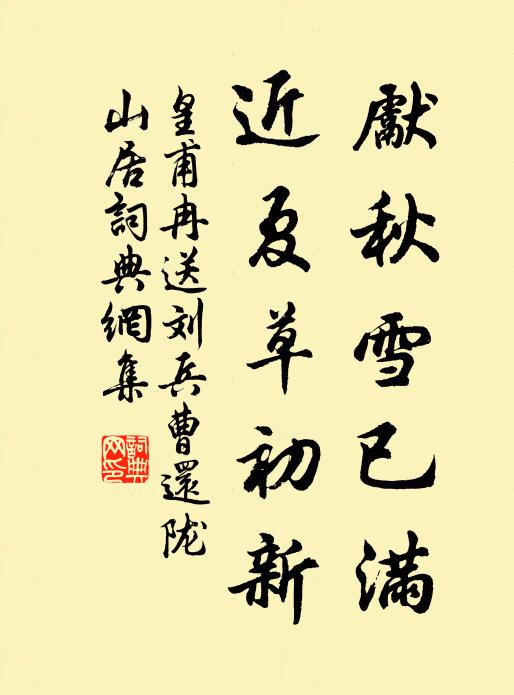 獻秋雪已滿
近夏草初新
皇甫冉送刘兵曹還陇
山居詞典網集
詞典
网印